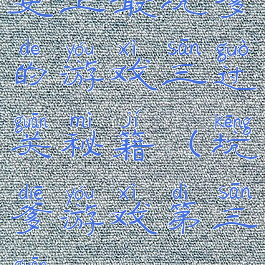 史上最坑爹
de yóu xì sān guò
的游戏三过
guān mì jí kēng
关秘籍（坑
diē yóu xì dì sān
爹游戏第三
guān